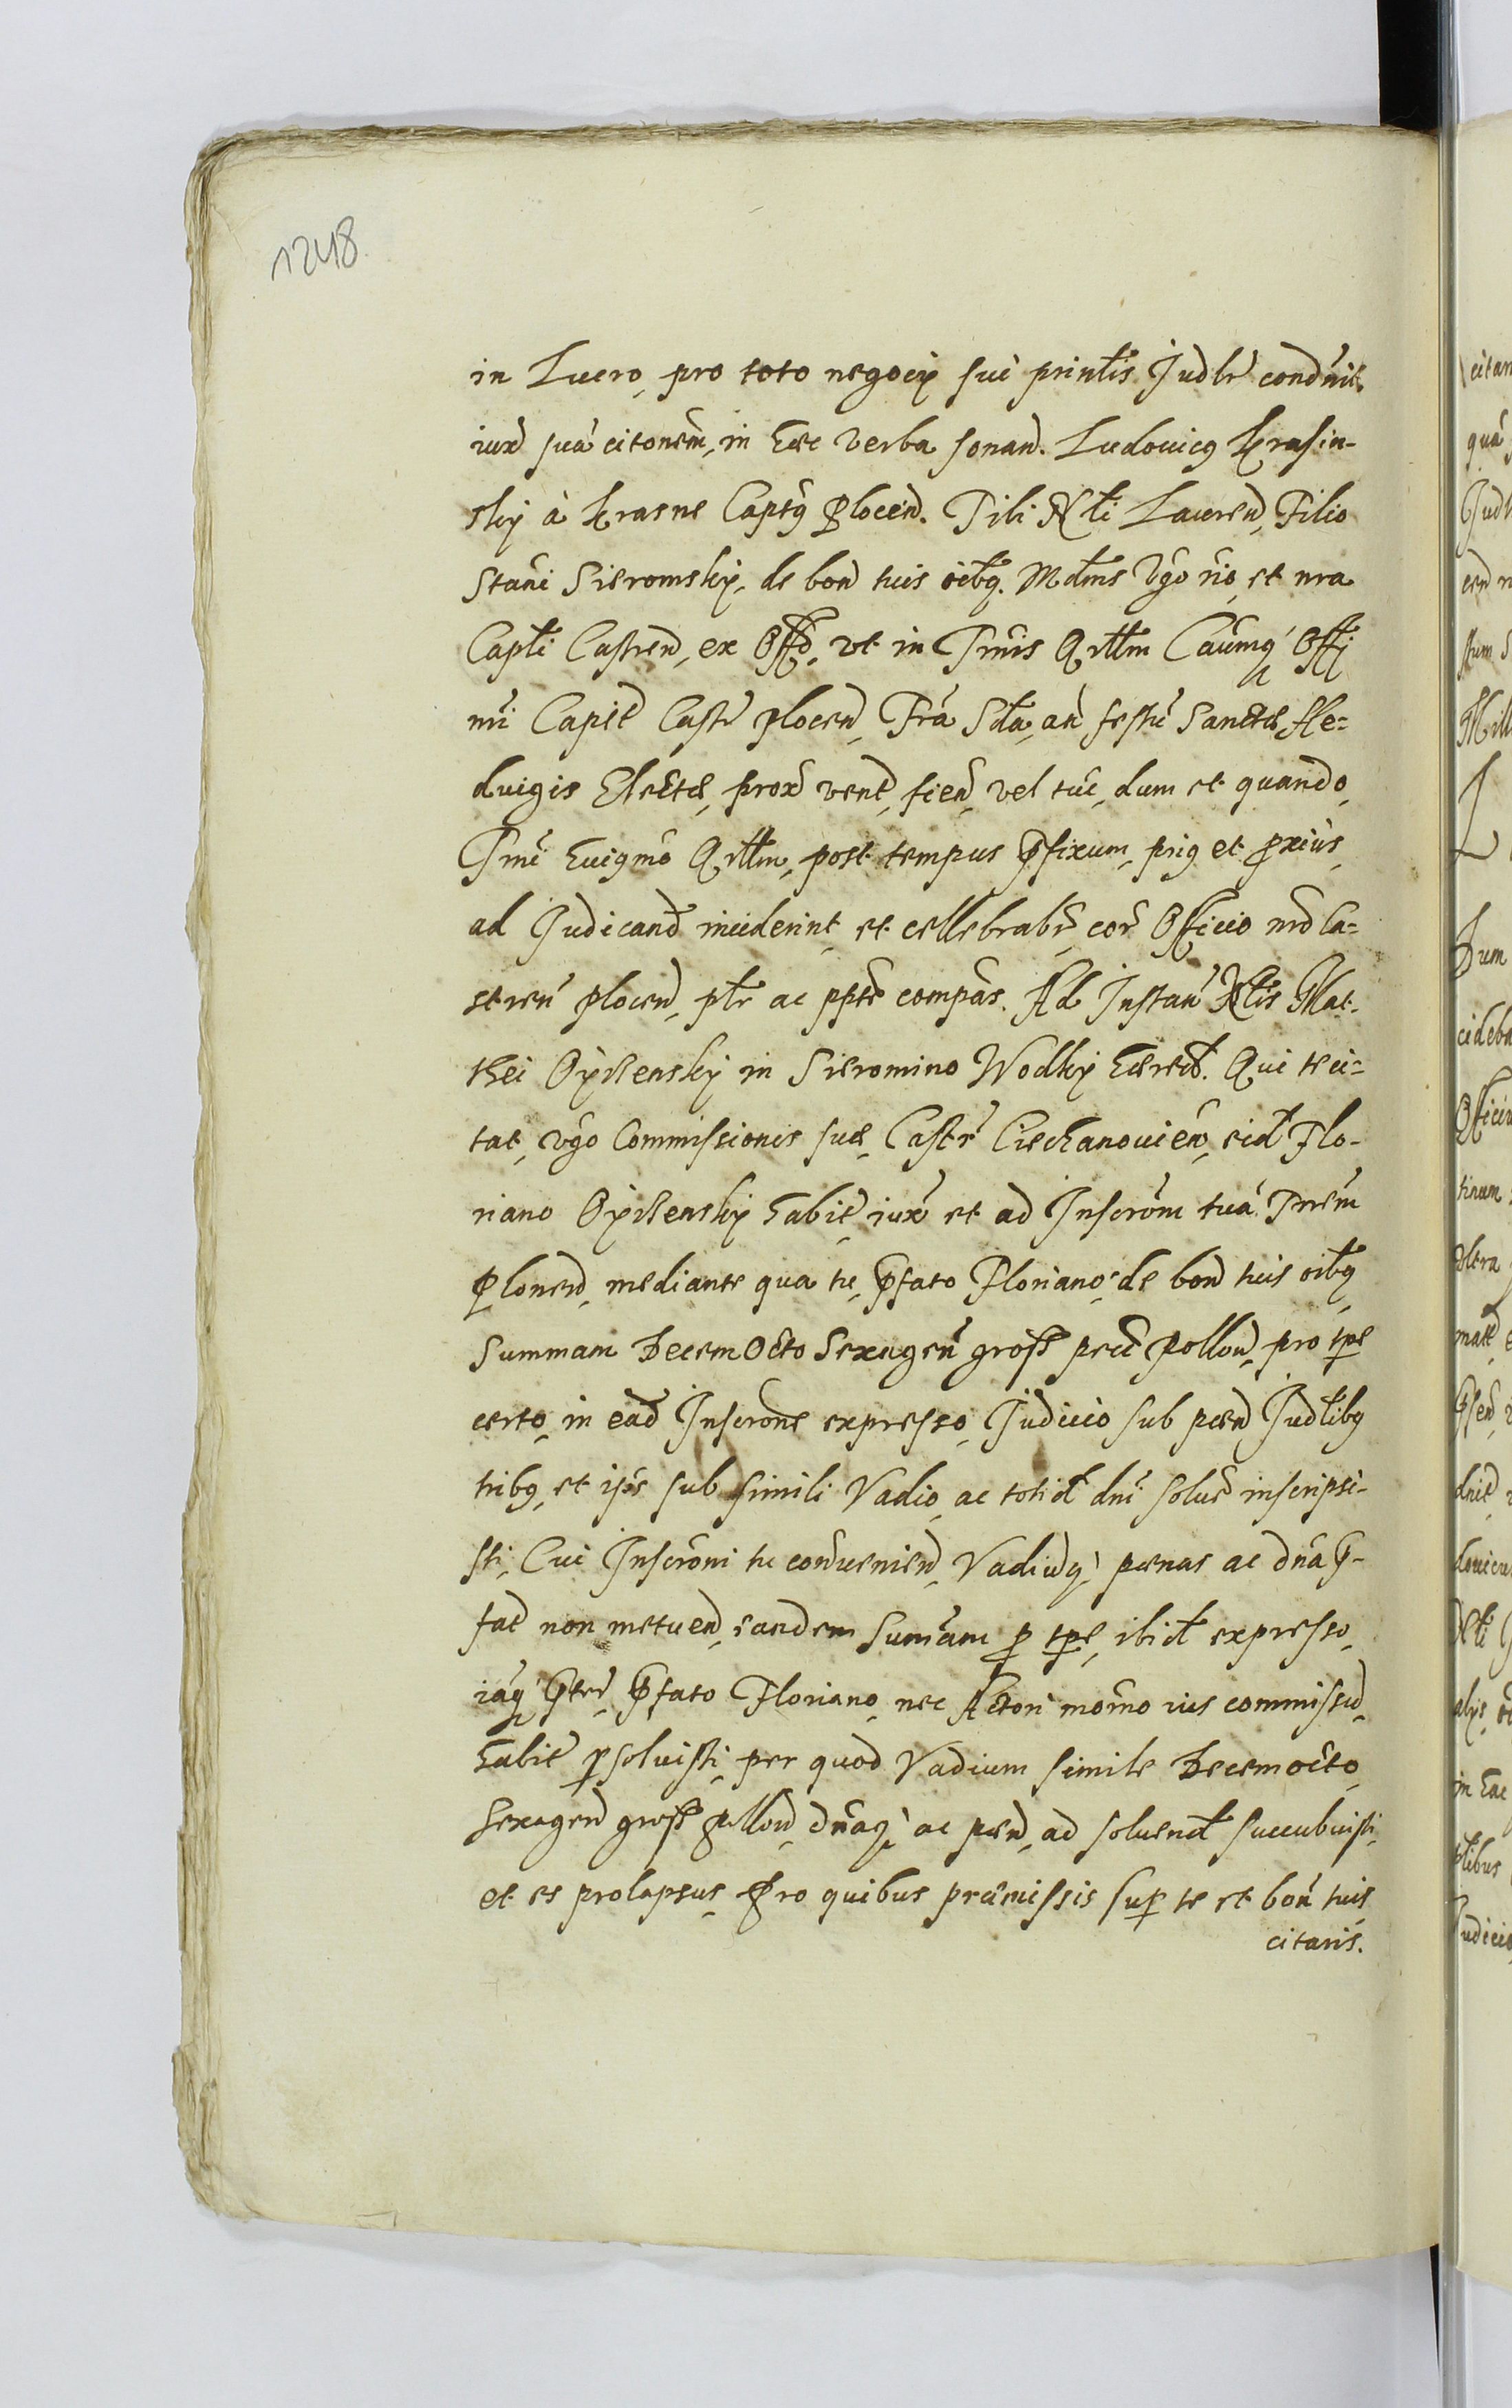 1248.
in Lucro, pro toto negocÿ sui printis Judlr condnit.
iux suã citonem, in hæc verba sonan. Ludouicq Krasin-
sky à Krasne Captq Plocen. Tibi Nli Lauren, Filio
Stani Sieromsky, de bon tuis oibq. Mdms Vgo rio, et nra
Capli Castren, ex Offo, vt in Tmis Qrllm Caumq Offi
nri Capit Castr Plocen, Fra Sda, an festu Sanctæ He=
duigis Electæ, prox vent, fien, vel tuc, dum et quando,
Tmi huigmo Qrllm, post tempus pfixum, priq et pxius,
ad Judicand inciderint, et cellebrabr, cor Officio nro Ca=
stren Plocen, plr ac pptr compas. Ad Instan Nlis Mat-
thei Oÿrzensky in Sieromino Wodky hæred. Qui te ci=
tat, vgo Commissionis suæ, Castr Ciechanouien, eid Flo-
riano Oÿrzensky habit, iux et ad Inscrom tuã Trrem
Plonen, mediante qua tu, pfato Floriano, de bon tuis oibq,
Summam Decem Octo Sexagen gross pecc Pollon, pro tpe
certo, in ead Inscrone expresso, Judicio sub pœn Judlibq
tribq, et ipis sub simili Vadio, ac totid dni solue inscripsi-
sti, Cui Inscroni tu conuenien, Vadiuq, pœnas ac dna p-
fat non metuen, eandem Summam p tpe, ibid expresso,
iaq pter, pfato Floriano, nec Actori momo ius commissu,
habit psoluisti, per quod Vadium simile Decemocto,
Sexagen gross Pollon, dnaq ac pœn, ad soluend succubuisti,
et es prolapsus, Pro quibus præmissis sup te et bon tuis
citaris.